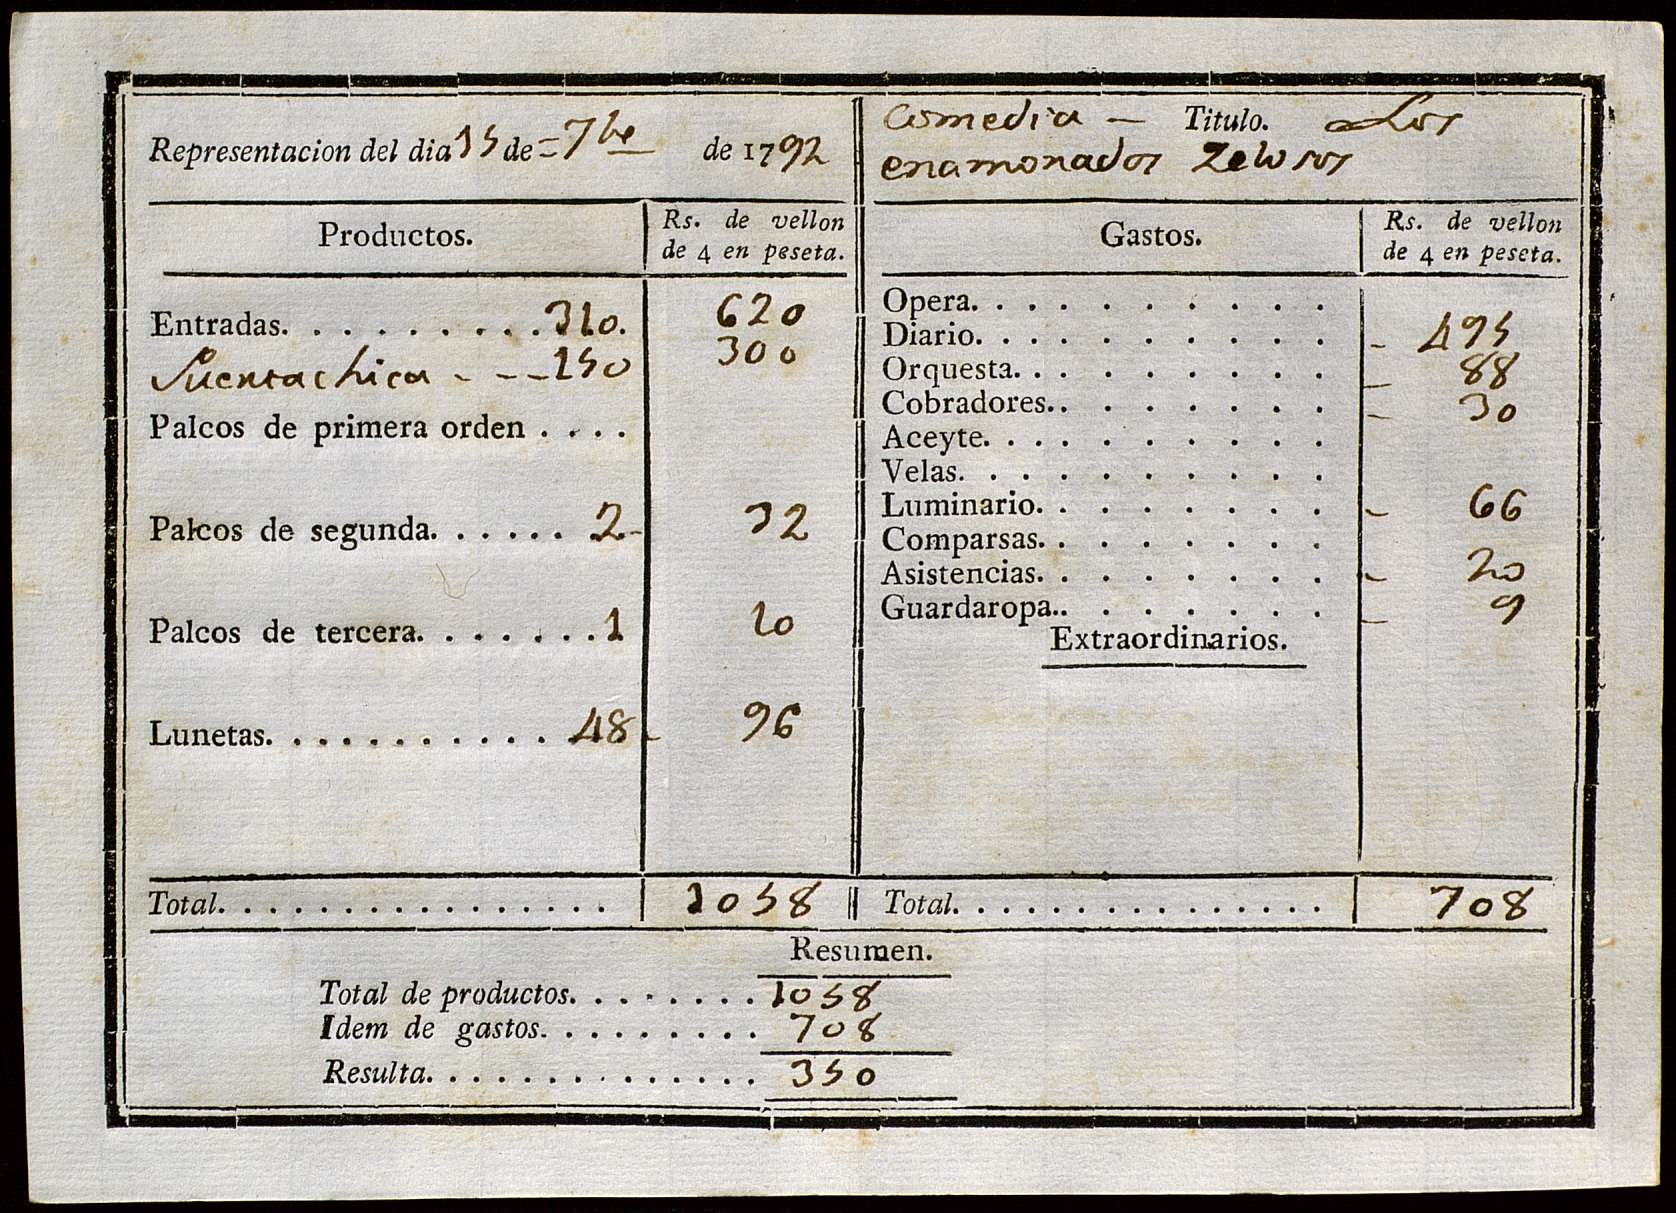 Representacion del dia 15 de = 7bre de 1792
Comedia — Titulo. Los
enamorados Zelosos
Productos.
Rs. de vellon
de 4 en peseta.
Entradas. . . . . . . . . . 310. 620
Puertachica - - - 150 300
Palcos de primera orden . . . .
Palcos de segunda. . . . . . 2 - 32
Palcos de tercera. . . . . . . 1 10
Lunetas. . . . . . . . . . . . 48 - 96
Total. . . . . . . . . . . . . . . . 1058
Gastos.
Rs. de vellon
de 4 en peseta.
Opera. . . . . . . . . .
Diario. . . . . . . . . . - 495
Orquesta. . . . . . . . . - 88
Cobradores.. . . . . . . - 30
Aceyte. . . . . . . . . .
Velas. . . . . . . . . .
Luminario. . . . . . . . - 66
Comparsas. . . . . . . .
Asistencias. . . . . . . . - 20
Guardaropa.. . . . . . . - 9
Extraordinarios.
Total. . . . . . . . . . . . . . . . 708
Resumen.
Total de productos. . . . . . . . 1058
Idem de gastos. . . . . . . . . . 708
Resulta. . . . . . . . . . . . . . 350